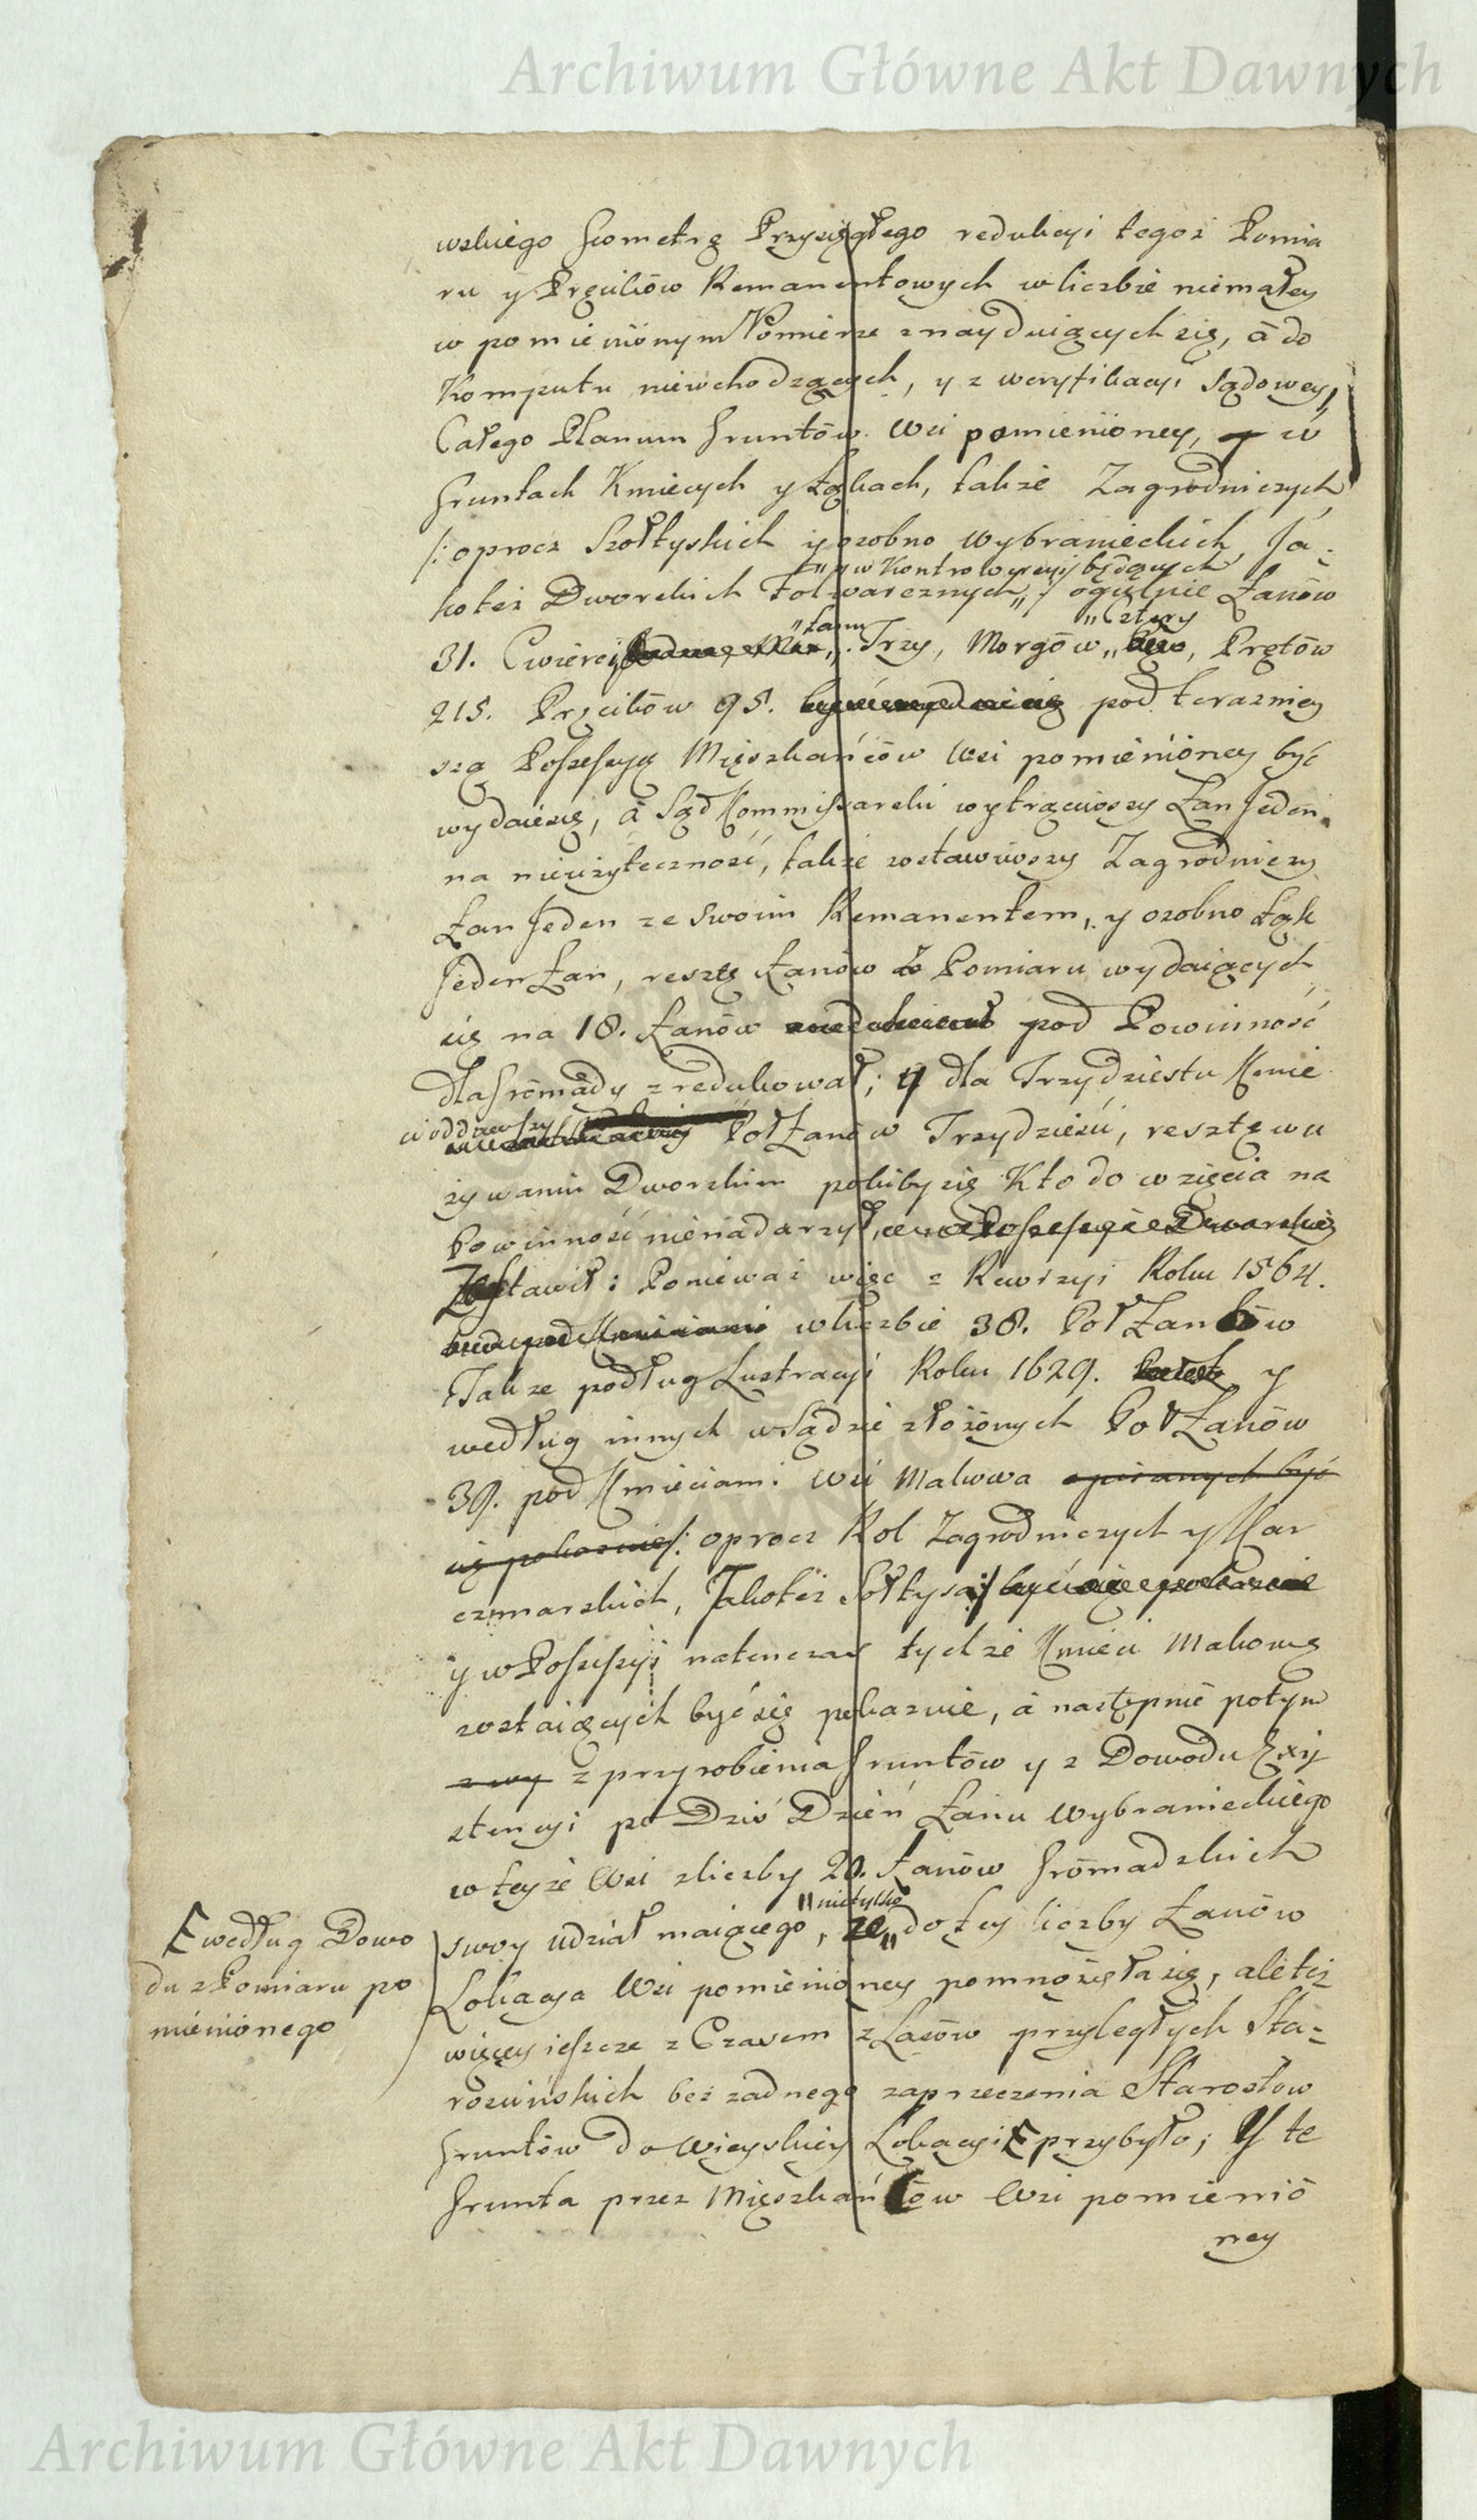 Archiwum Główne Akt Dawnych
wskiego Geometrę Przysięgłego redukcyi tegoż Pomia
ru y Pręcików Remanentowych w liczbie niemałey
w pomienionym Pomierze znayduiących się, á do
Komputu niewchodzących, y z weryfikacyi Sądowey,
Całego Planum Gruntów Wsi pomienioney, w
Gruntach Kmiecych y Łąkach, także Zagrodniczych
/: oprocz Szołtyskich y osobno wybranieckich, Ja-
y w Kontrowersyi będących
koteż Dworskich Folwarcznych :/ ogulnie Łanów
łanu Cztery
31. Cwierci Trzy, Morgów, Prętów
215. Pręcików 95. pod terazniey
szą Possessyą Mięszkańców Wsi pomienioney być
wydaie się, á Sąd Kommissarski wytrąciwszy Łan Jeden
na nieużyteczność, także zostawiwszy Zagrodniczy
Łan Jeden ze swoim Remanentem, y osobno Łąk
Jeden Łan, resztę Łanów z Pomiaru wydaiących
się na 18. Łanów pod Powinność
dla Gromady zredukował; y dla Trzydziestu Kmie
ci oddawszy PołŁanów Trzydzieści, resztę w u
żywaniu Dworskim pokiby się Kto do wzięcia na
Powinność nienadarzył, w Possessyi Dworskiey
Zostawił: Ponieważ więc z Rewizyi Roku 1564.
w liczbie 38. PołŁanków
Także podług Lustracyi Roku 1629. y
według innych w Sądzie złożonych PołŁanów
39. pod Kmieciami Wsi Makowa opisanych być
się pokazuie /: oprocz Rol Zagrodniczych y Kar
czmarskich, Jakoteż Sołtysa :/ być się pokazuie
y w Possessyi natenczas tychże Kmieci Makowa
zostaiących być się pokazuie, á następnie potym
z wy z przyrobienia Gruntów y z Dowodu Exy
stencyi po Dziś Dzień Łanu Wybranieckiego
w teyże Wsi z liczby 20. Łanów Gromadzkich
nietylko
swoy udział maiącego, że do tey liczby Łanów
Lokacya Wsi pomienioney pomnożyła się, ale też
więcey ieszcze z Czasem z Lasów przyległych Sta-
rościńskich bez żadnego zaprzeczenia Starostow
Gruntów do Wieyskiey Lokacyi przybyło; Y te
Grunta przez Mięszkańców Wsi pomienio
ney
według Dowo
du z Pomiaru po
mienionego
Archiwum Główne Akt Dawnych